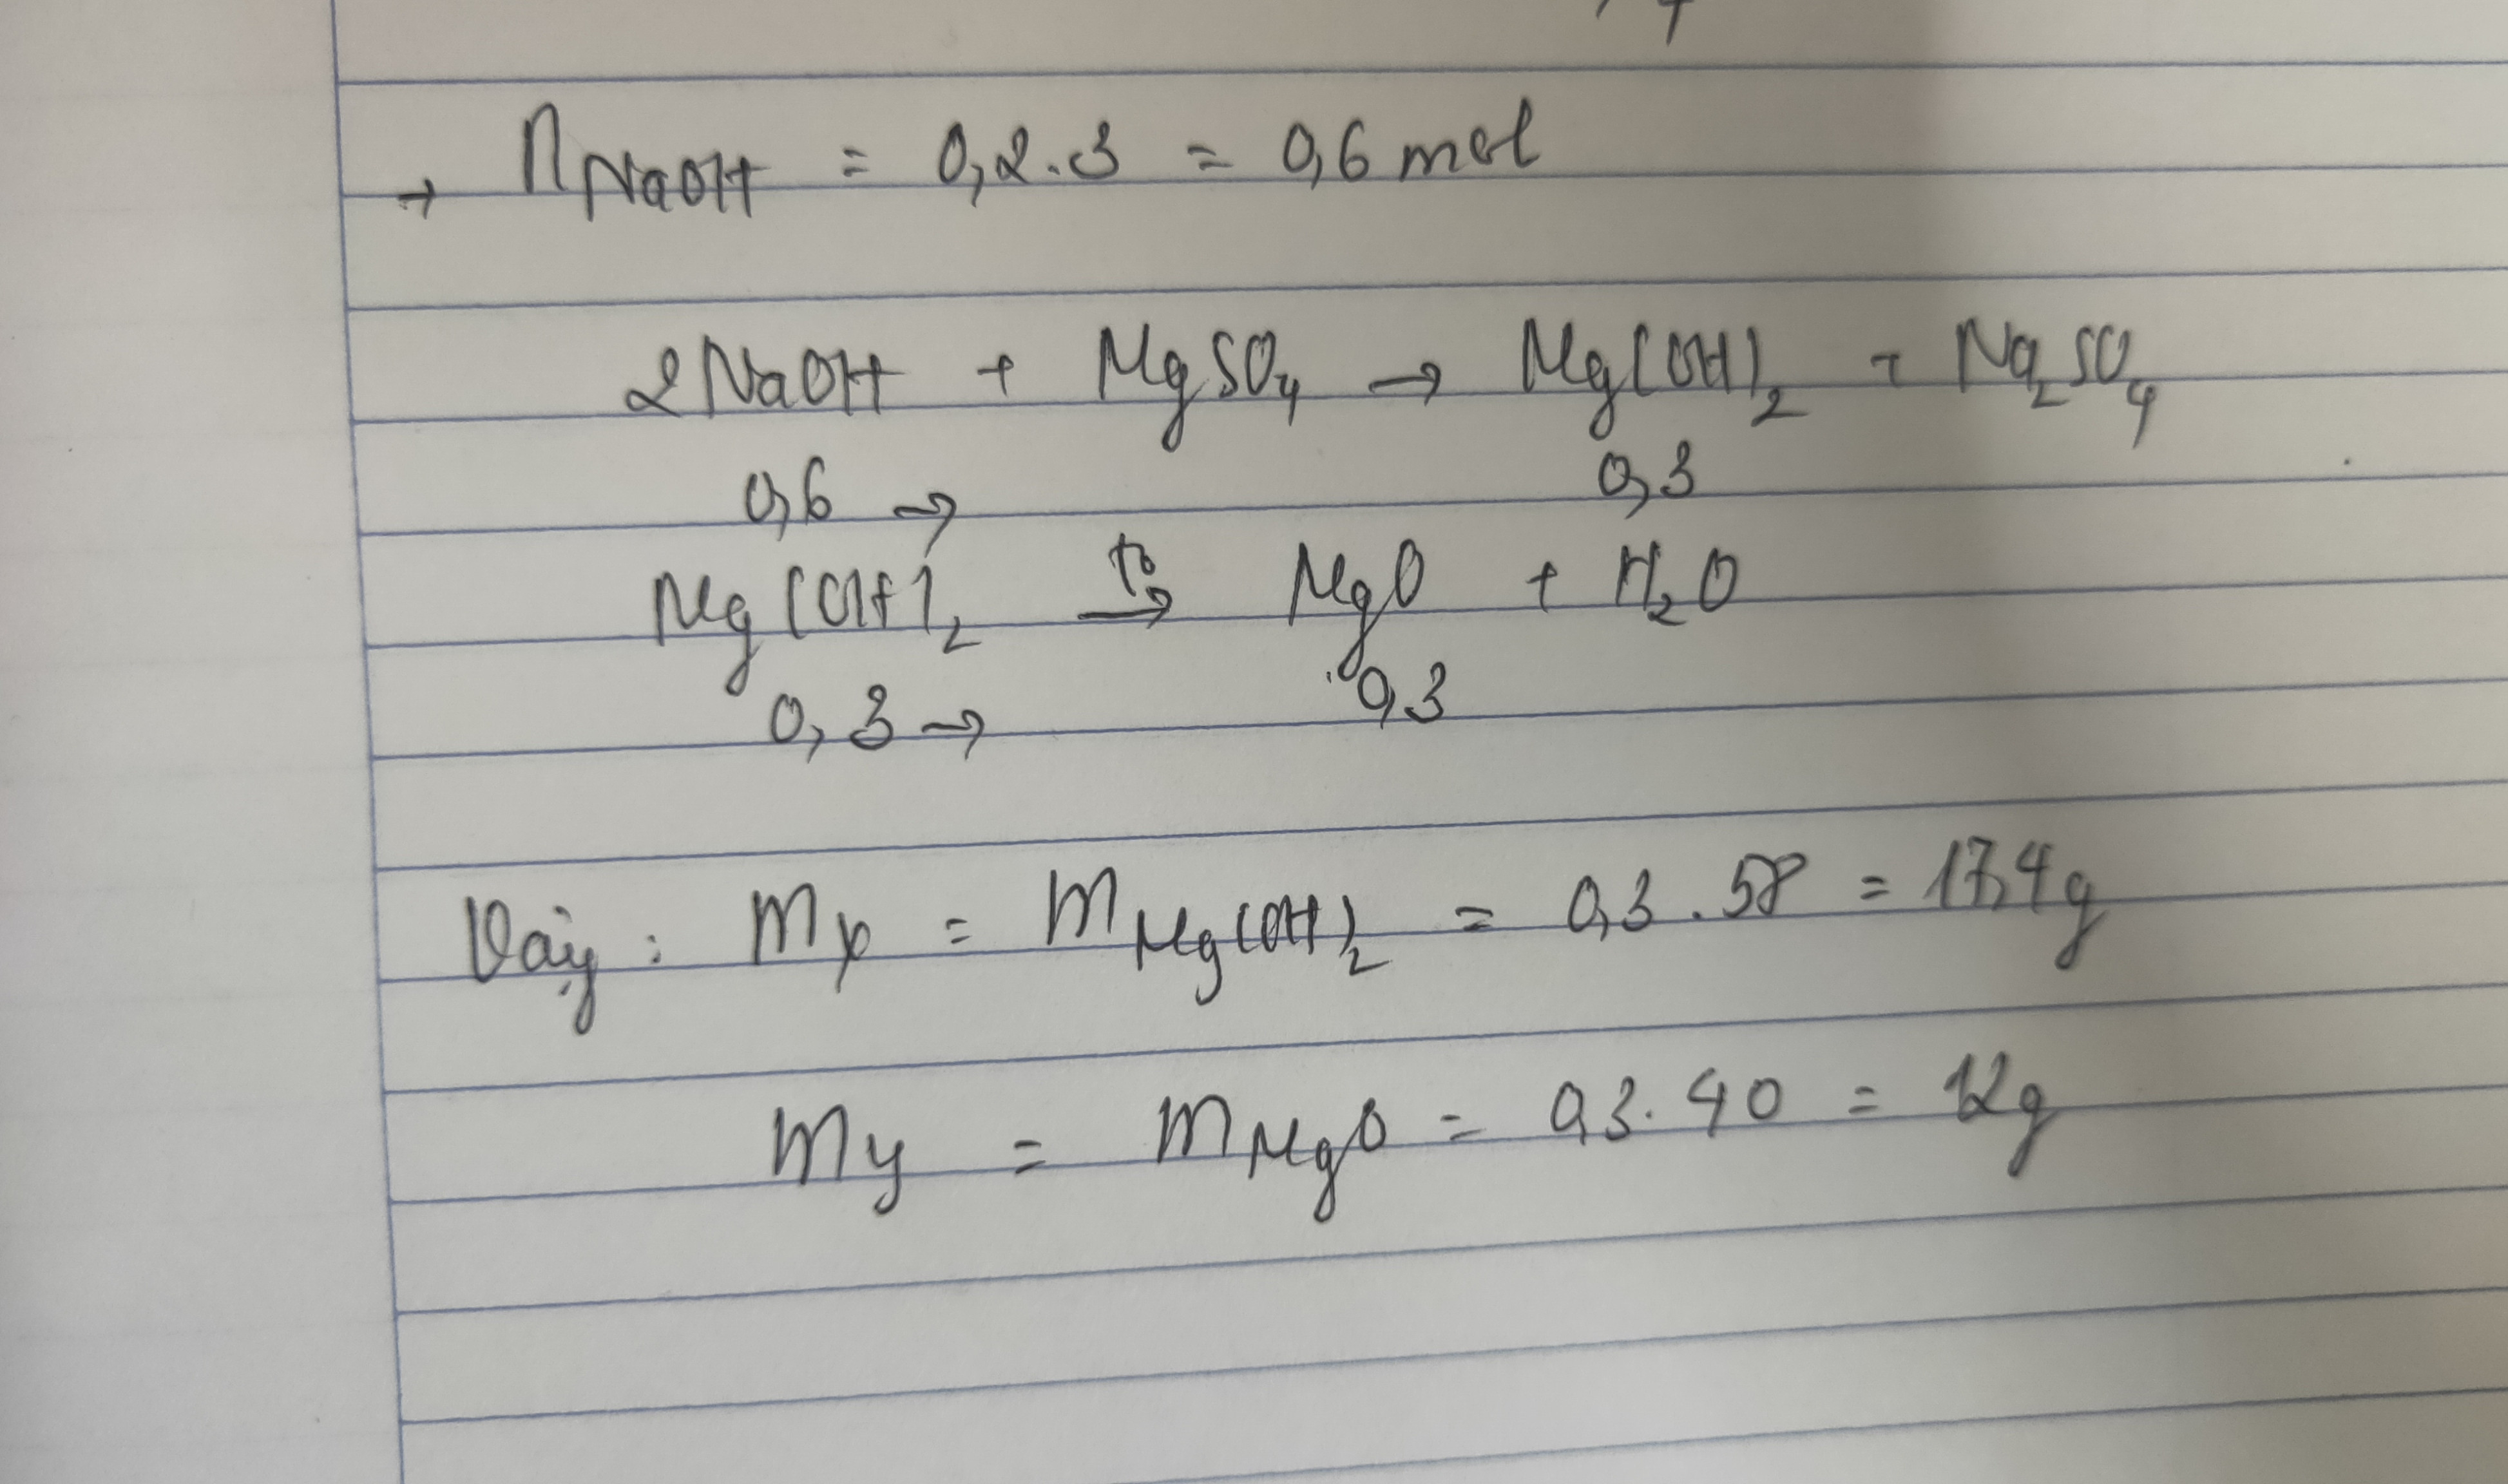 → nNaOH = 0,2.3 = 0,6 mol
2NaOH + MgSO₄ → Mg(OH)₂ + Na₂SO₄
0,6 → 0,3
Mg(OH)₂ t° → MgO + H₂O
0,3 → 0,3
Vậy : mx = mMg(OH)₂ = 0,3 . 58 = 17,4g
my = mMgO = 0,3. 40 = 12g